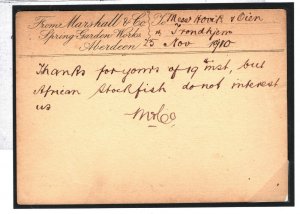 From Marshall & Co To Messrs Hovik & Oien
Spring Garden Works, Trondhjem
Aberdeen 25 Nov 1910
Thanks for yours of 19th inst, but
African Stockfish do not interest
us
M & Co